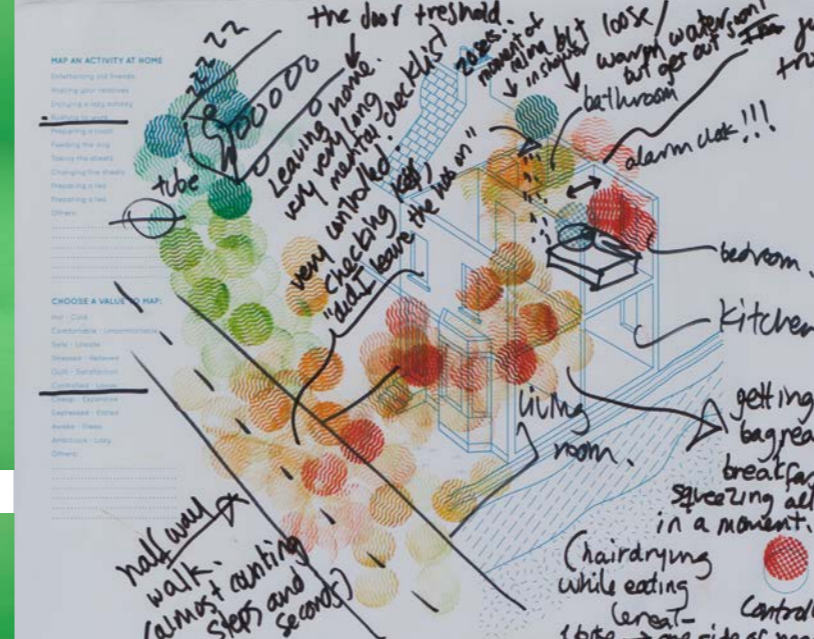 MAP AN ACTIVITY AT HOME
Entertaining old friends
Hosting your relatives
Enjoying a lazy sunday
Rushing to work
Preparing a roast
Feeding the dog
Taking the sheets
Changing the sheets
Preparing a tea
Preparing a tea
Others:
CHOOSE A VALUE TO MAP:
Hot - Cold
Comfortable - Uncomfortable
Safe - Unsafe
Stressed - Relieved
Guilt - Satisfaction
Controlled - Loose
Cheap - Expensive
Depressed - Elated
Awake - Sleep
Ambitious - Lazy
Others:
the door treshold.
zzz zz
tube
Leaving home.
very very long
very mental checklist
very controlled!
checking keys,
"did I leave the hob on"
20secs.
moment of
in shower
but loose/
warm water
but get out
bathroom
alarm clok!!!
bedroom.
kitchen
living
room.
getting
breakfast
squeezing all
in a moment.
(hairdrying
while eating
cereal-
half way
walk.
(almost counting
steps and
seconds)